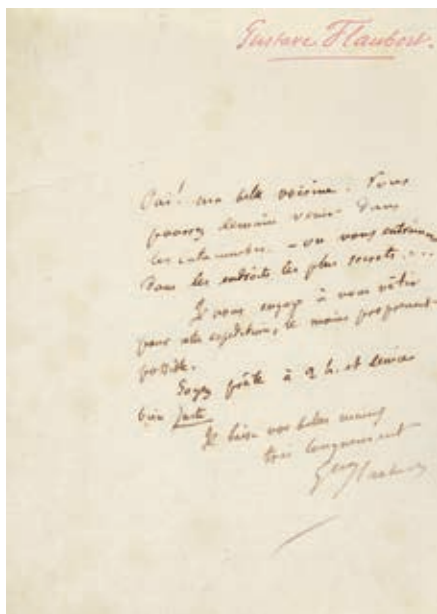 Gustave Flaubert.
Oui! ma belle voisine. Vous
pouvez demain venir dans
les catacombes. - on vous entraînera
dans les endroits les plus secrets...
Je vous engage à vous vêtir
pour cette expédition, le moins proprement
possible.
Soyez prête à 2 h. et demie
bien juste
Je baise vos belles mains
très longuement
Gve Flaubert